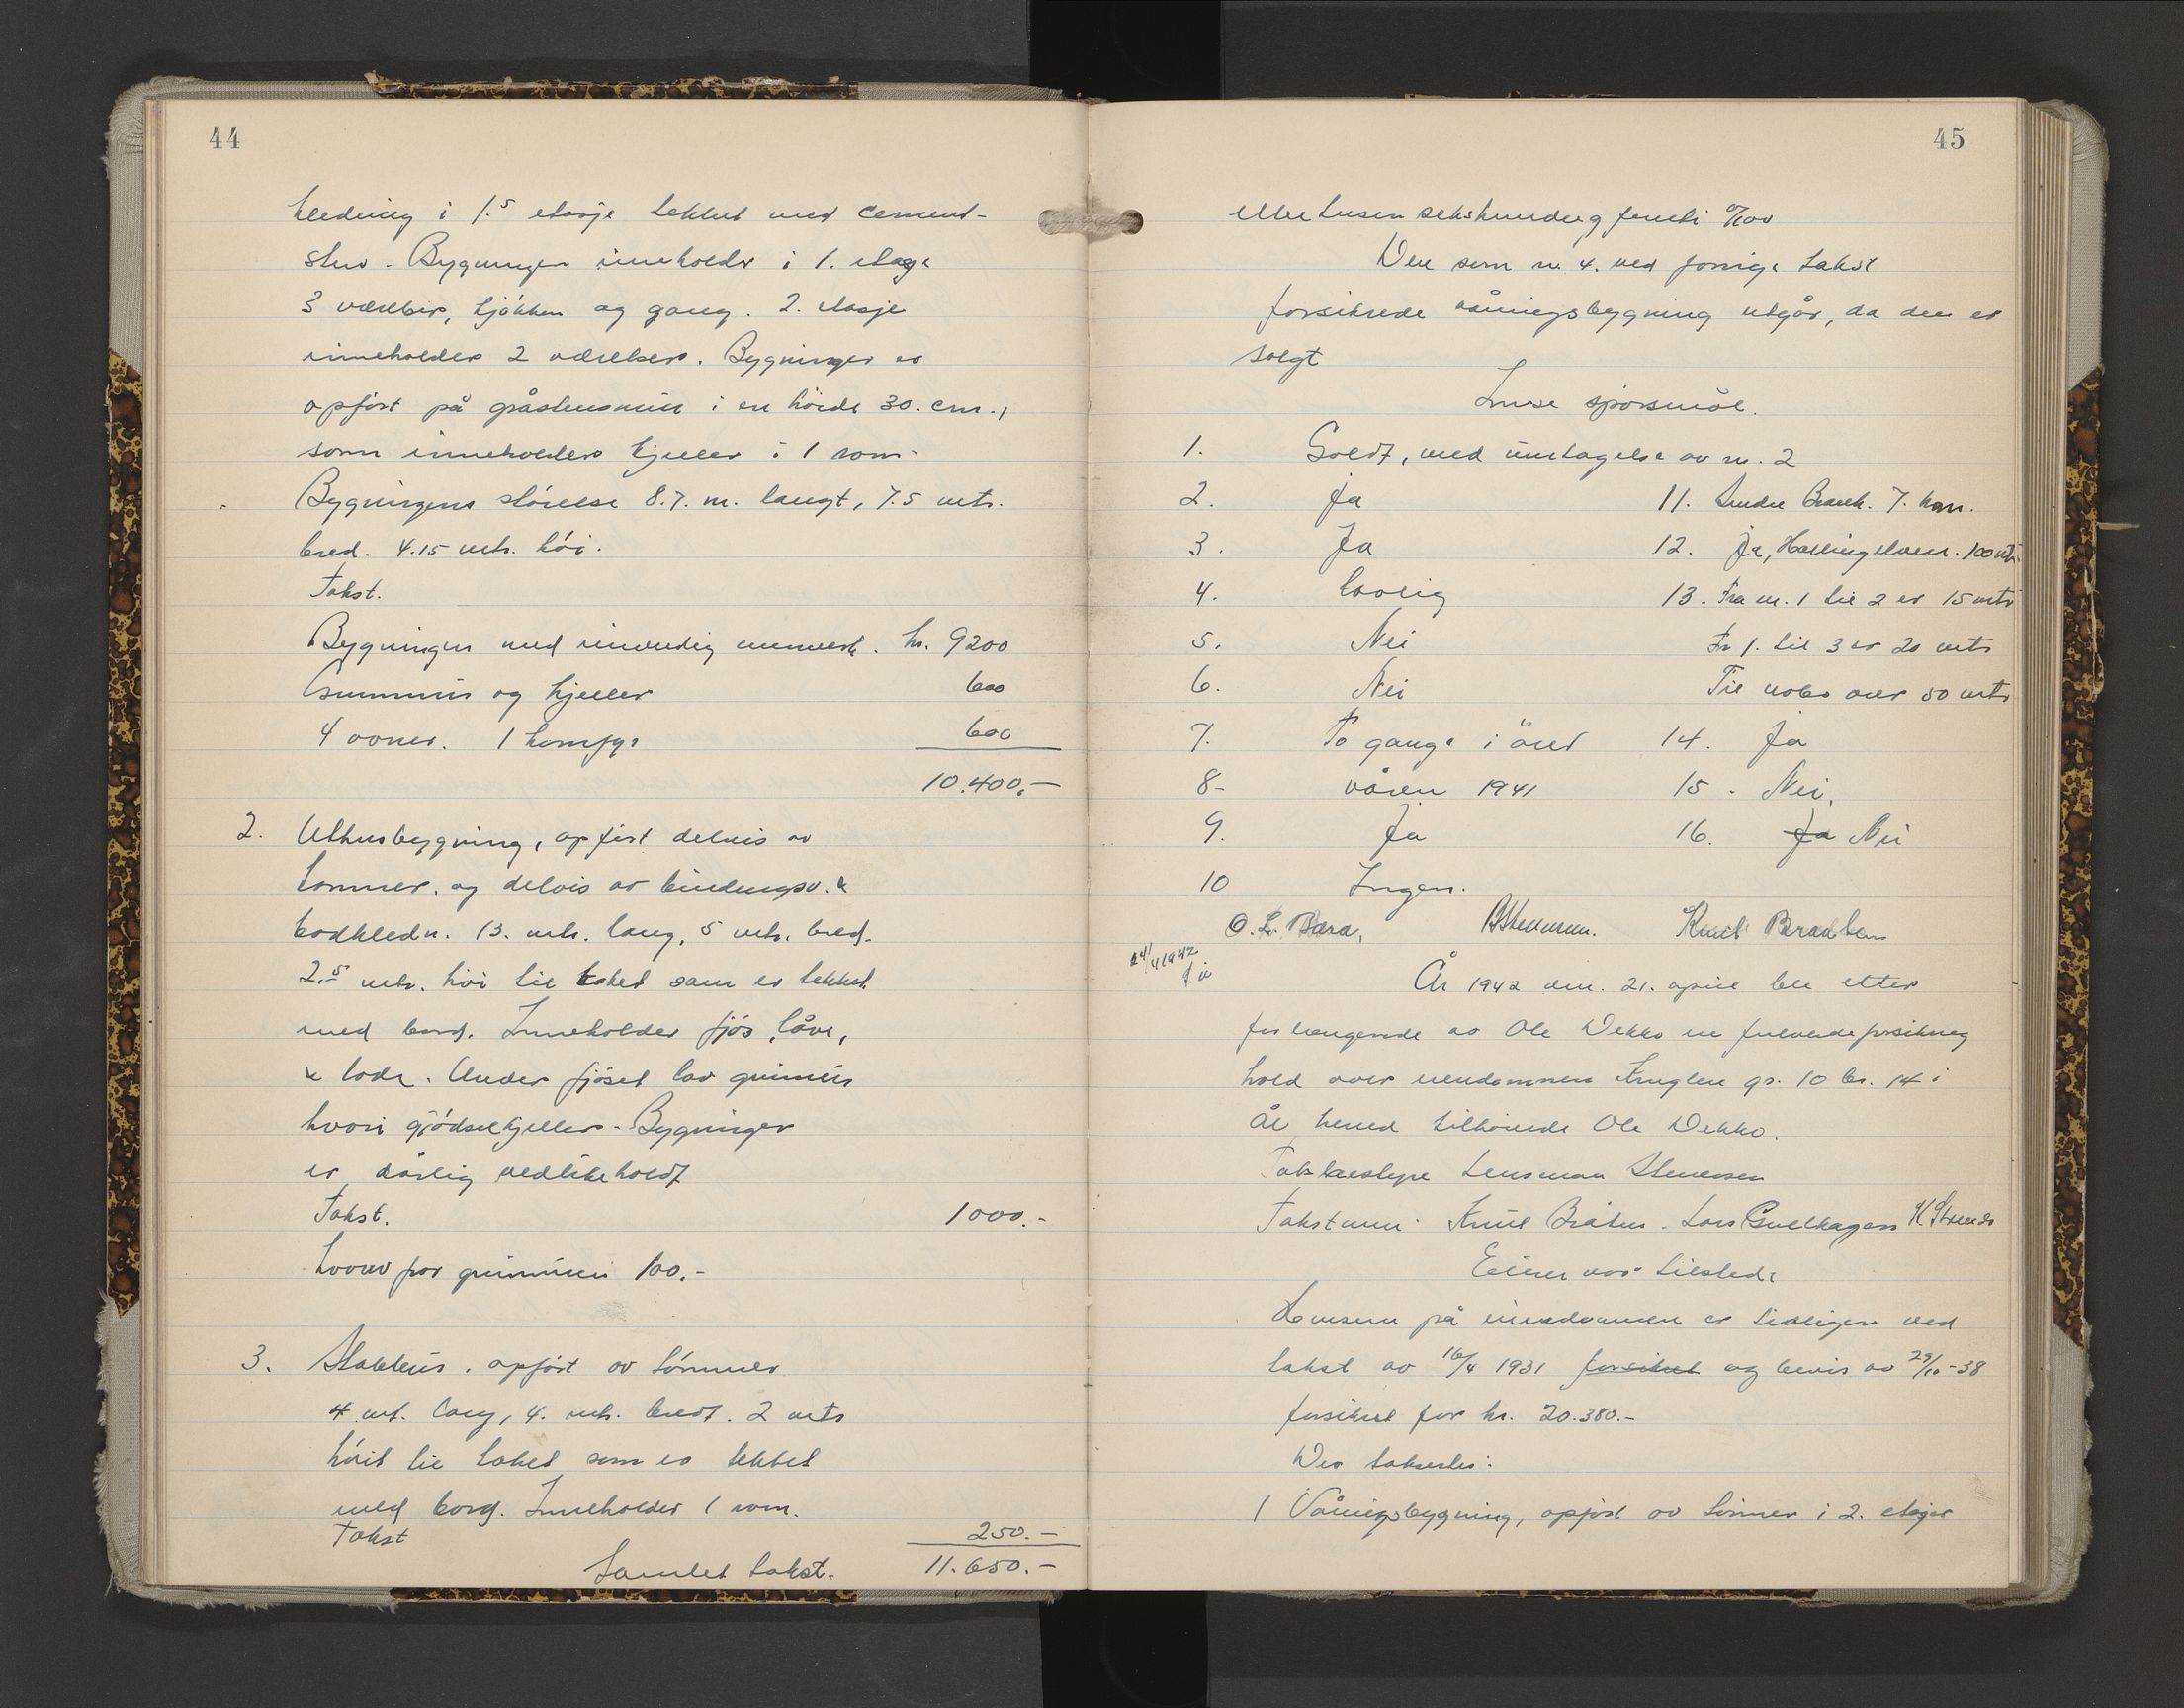 44
kledning i 1.5 etasje tekket med cement-
sten. Bygningen inneholder i 1. etage
3 værelser, kjökken og gang. 2. etasje
inneholder 2 værelser. Bygningen er
opfört på gråstensmur i en höide 30. cm.,
som inneholder kjeller i 1 rom.
Bygningens störelse 8.7. m. langt, 7.5 mtr.
bred. 4.15 mtr. höi.
Takst.
Bygningen med innvendig murverk. kr. 9200
Grunnmur og kjeller 600
4 ovner. 1 komfyr 600
10.400.-
2. Uthusbygning, opfört delvis av
tömmer. og delvis av bindingsv. &
bordkledn. 13. mtr. lang, 5 mtr. bred.
2.5 mtr. höi til taket som er tekket
med bord. Inneholder fjös, låve,
& lade. Under fjöset lav grunmur
hvori gjödselkjeller. Bygningen
er dårlig vedlikeholdt
Takst. 1000.-
hvorav for grunmuren 100.-
3. Stabbur. opfört av tömmer
4 mt. lang, 4. mtr. bredt. 2 mtr
höit til taket som er tekket
med bord. Inneholder 1 rom.
Takst 250.-
Samlet takst. 11.650.-
45
elletusen sekshundreg femti 0/100
Den som nr. 4. ved forrige takst
forsikrede våningsbygning utgår, da den er
solgt
Innse spörsmål.
1. Godt, med unntagelse av nr. 2
2. Ja 11. Söndre Brandk. 7. km.
3. Ja 12. Ja, Hallingelven. 100 mtr
4. Lovlig 13. Fra nr. 1 til 2 er 15 mtr
5. Nei Fr 1. til 3 er 20 mtr
6. Nei Til nabo over 50 mtr
7. To gange i året 14. Ja
8- våren 1941 15. Nei.
9. Ja 16. Ja Nei
10 Ingen.
O. L. Bara. Knut Braaten
24/4 1942
År 1942 den. 21. april ble etter
forlangende av Ole Dekko en
hold over eiendommen gr. 10 br. 14 i
Ål herred tilhörende Ole Dekko.
Takstbestyre Lensman Stenersen
Takstmenn: Knut Bråten. Lars Gullhagen
Eieren var tilstede
Husene på eiendommen er tidligere ved
takst av 16/4 1931 forsikret og bevis av 29/10-38
forsikret for kr. 20.380.-
Der taksertes:
1 Våningsbygning, opfört av tömmer i 2. etager